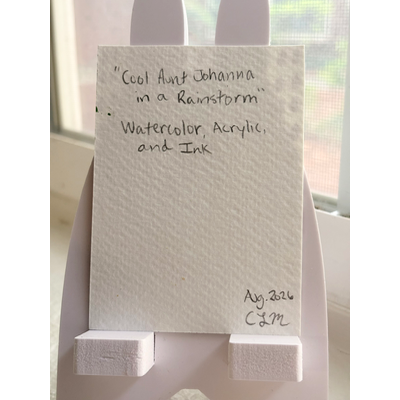 "Cool Aunt Johanna
in a Rainstorm"
Watercolor, Acrylic,
and Ink
Aug. 2026
CLM